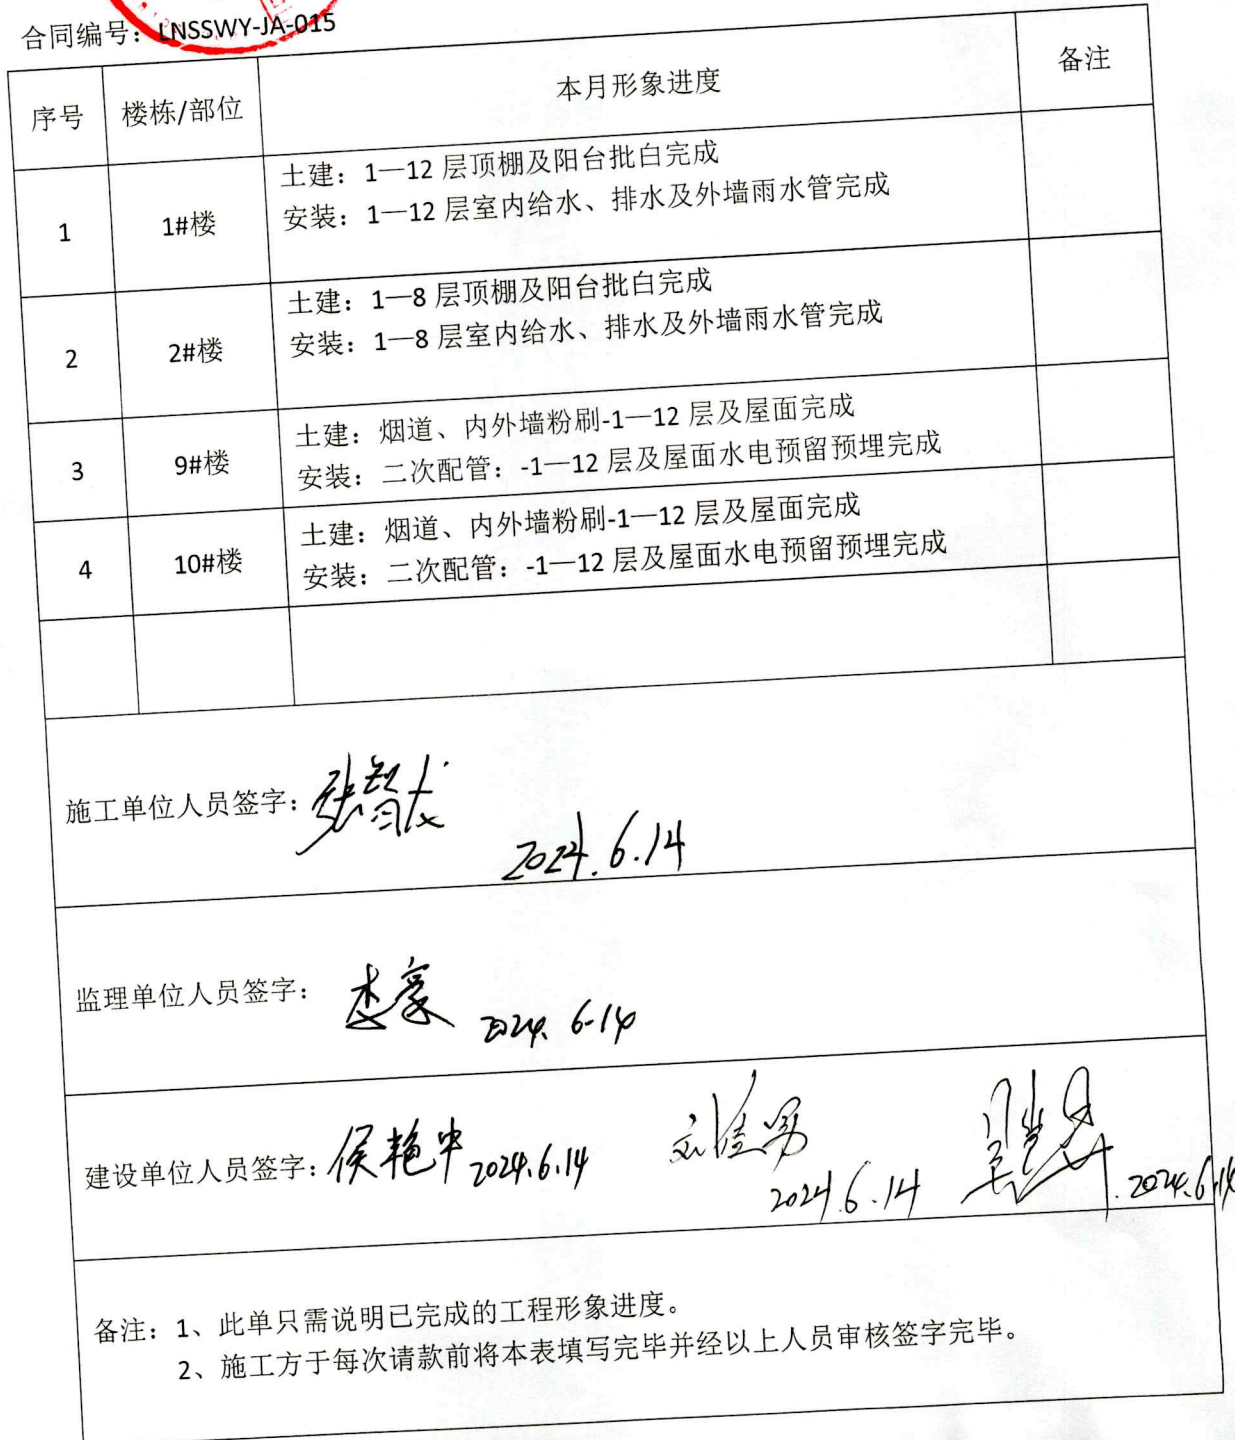 合同编号：LNSSWY-JA-015
序号 楼栋/部位 本月形象进度 备注
1 1#楼 土建：1—12 层顶棚及阳台批白完成
安装：1—12 层室内给水、排水及外墙雨水管完成
2 2#楼 土建：1—8 层顶棚及阳台批白完成
安装：1—8 层室内给水、排水及外墙雨水管完成
3 9#楼 土建：烟道、内外墙粉刷-1—12 层及屋面完成
安装：二次配管：-1—12 层及屋面水电预留预埋完成
4 10#楼 土建：烟道、内外墙粉刷-1—12 层及屋面完成
安装：二次配管：-1—12 层及屋面水电预留预埋完成
施工单位人员签字：张智成
2024.6.14
监理单位人员签字：李豪 2024.6-14
建设单位人员签字：侯艳中 2024.6.14 刘佳男 2024.6.14 2024.6.14
备注：1、此单只需说明已完成的工程形象进度。
2、施工方于每次请款前将本表填写完毕并经以上人员审核签字完毕。